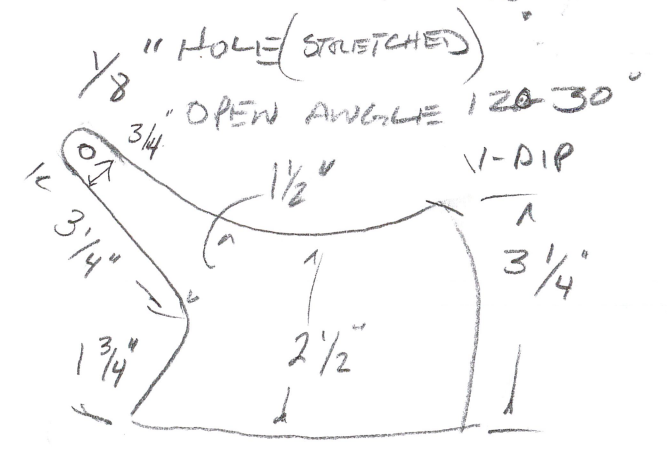 1/8" HOLE (STRETCHED)
OPEN ANGLE 120-30°
3/4"
V-DIP
1 1/2"
3 1/4"
3 1/4"
1 3/4"
2 1/2"